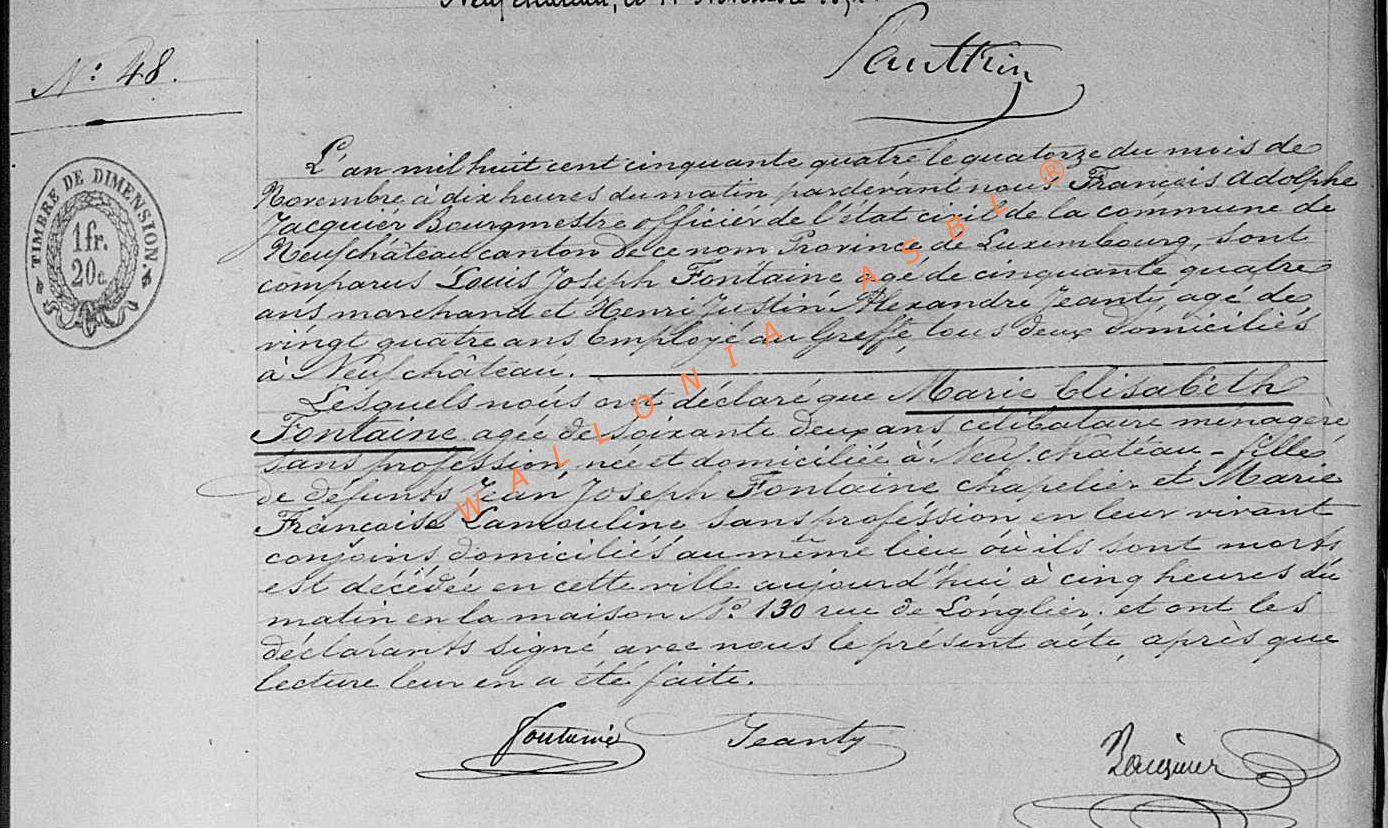 Neufchâteau, le
N° 48.
TIMBRE DE DIMENSION
1 fr.
20 c.
L'an mil huit cent cinquante quatre le quatorze du mois de
Novembre à dix heures du matin pardevant nous François Adolphe
Jacquier Bourgmestre officier de l'état civil de la commune de
Neufchâteau canton de ce nom Province de Luxembourg, sont
comparus Louis Joseph Fontaine agé de cinquante quatre
ans marchand et Henri Justin Alexandre Jeanty agé de
vingt quatre ans Employé au Greffe, tous deux domiciliés
à Neufchâteau.
Lesquels nous ont déclaré que Marie Elisabeth
Fontaine agée de soixante deux ans célibataire ménagère
sans profession née et domiciliée à Neufchâteau - fille
de défunts Jean Joseph Fontaine chapelier et Marie
Françoise Lamouline sans profession en leur vivant
conjoins domiciliés au même lieu où ils sont morts
est décédée en cette ville aujourd'hui à cinq heures du
matin en la maison N° 130 rue de Longlier. et ont les
déclarants signé avec nous le présent acte, après que
lecture leur en a été faite.
Fontaine Jeanty Jacquier
WALLONIA ASBL ®